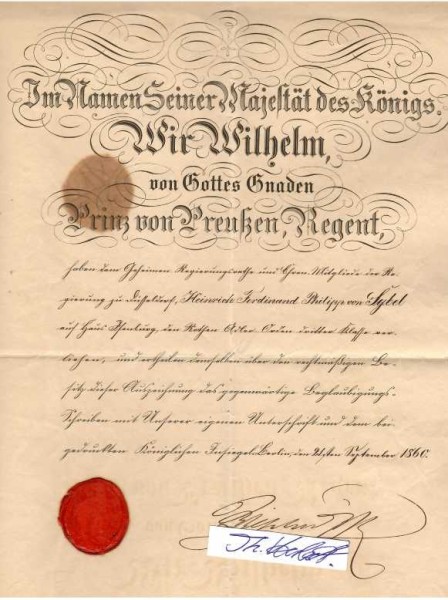 Im Namen Seiner Majestät des Königs.
Wir Wilhelm,
von Gottes Gnaden
Prinz von Preußen, Regent,
haben dem Geheimen Regierungsrathe und Ehren-Mitgliede der Re-
gierung zu Düsseldorf, Heinrich Ferdinand Philipp von Sybel
auf Haus Isenburg, den Rothen Adler Orden dritter Klasse ver-
liehen, und ertheilen demselben über den rechtmäßigen Be-
sitz dieser Auszeichnung das gegenwärtige Beglaubigungs-
Schreiben mit Unserer eigenen Unterschrift und dem bei-
gedruckten Königlichen Insiegel. Berlin, den 21sten September 1860.
Wilhelm